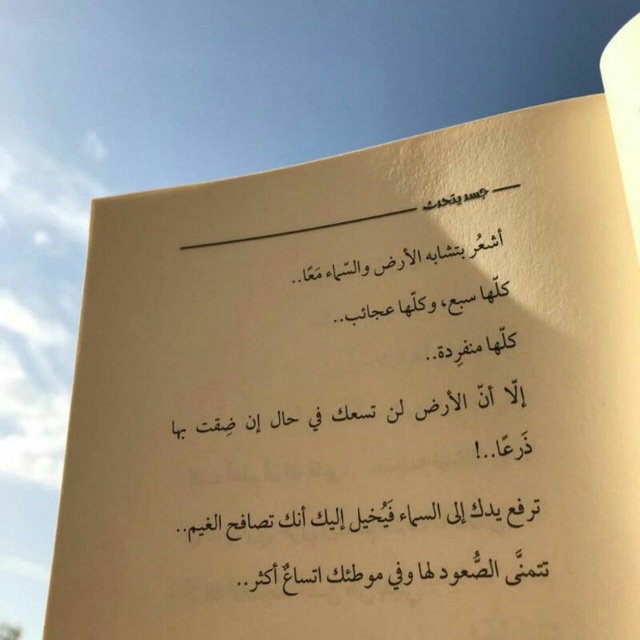 جسد يتحدث
أشعُر بتشابه الأرض والسّماء مَعًا..
كلّها سبع، وكلّها عجائب..
كلّها منفرِدة..
إلّا أنّ الأرض لن تسعك في حال إن ضِقت بها
ذَرعًا..!
ترفع يدك إلى السماء فَيُخيل إليك أنك تصافح الغيم..
تتمنَّى الصُّعود لها وفي موطئك اتساعٌ أكثر..